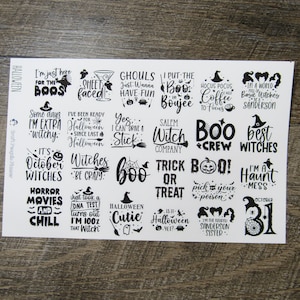 HALLOWEEN
I'm just here
FOR THE
BOOS
SHEET
faced
GHOULS
Just Wanna
HAVE FUN
I PUT THE
Boo
IN
Boujee
HOCUS POCUS
Coffee
TO
Focus
I'M A WORLD
SANDERSON
Some days
I'M EXTRA
Witchy
I'VE BEEN READY
FOR
Halloween
SINCE LAST
Halloween
Yes,
I CAN
DRIVE A
Stick
SALEM
Witch
COMPANY
BOO
CREW
best
WITCHES
IT'S
OCTOBER
WITCHES
Witches
BE CRAZY
boo
TRICK
OR
TREAT
BOO!
pick your
poison
I'M A
Haunt
MESS
HORROR
MOVIES
AND
CHILL
Just took a
DNA TEST
turns out
I'M 100%
that Witch
HALLOWEEN
Cutie
IS IT
Halloween
YET?
SANDERSON
SISTER
OCTOBER
31